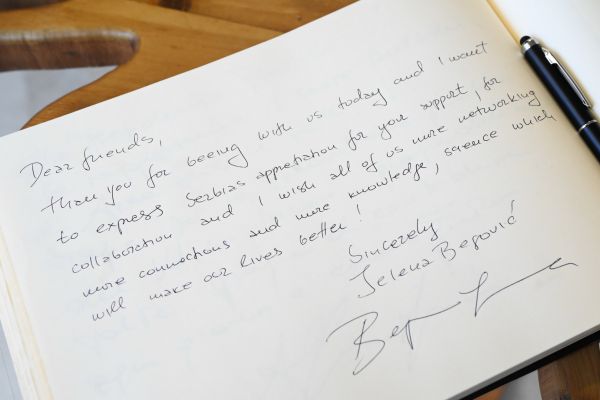 Dear friends,
thank you for beeing with us today and I want
to express Serbias appretiation for your support, for
collaboration and I wish all of us more networking
more connections and more knowledge, science which
will make our lives better!
Sincerely
Jelena Begović